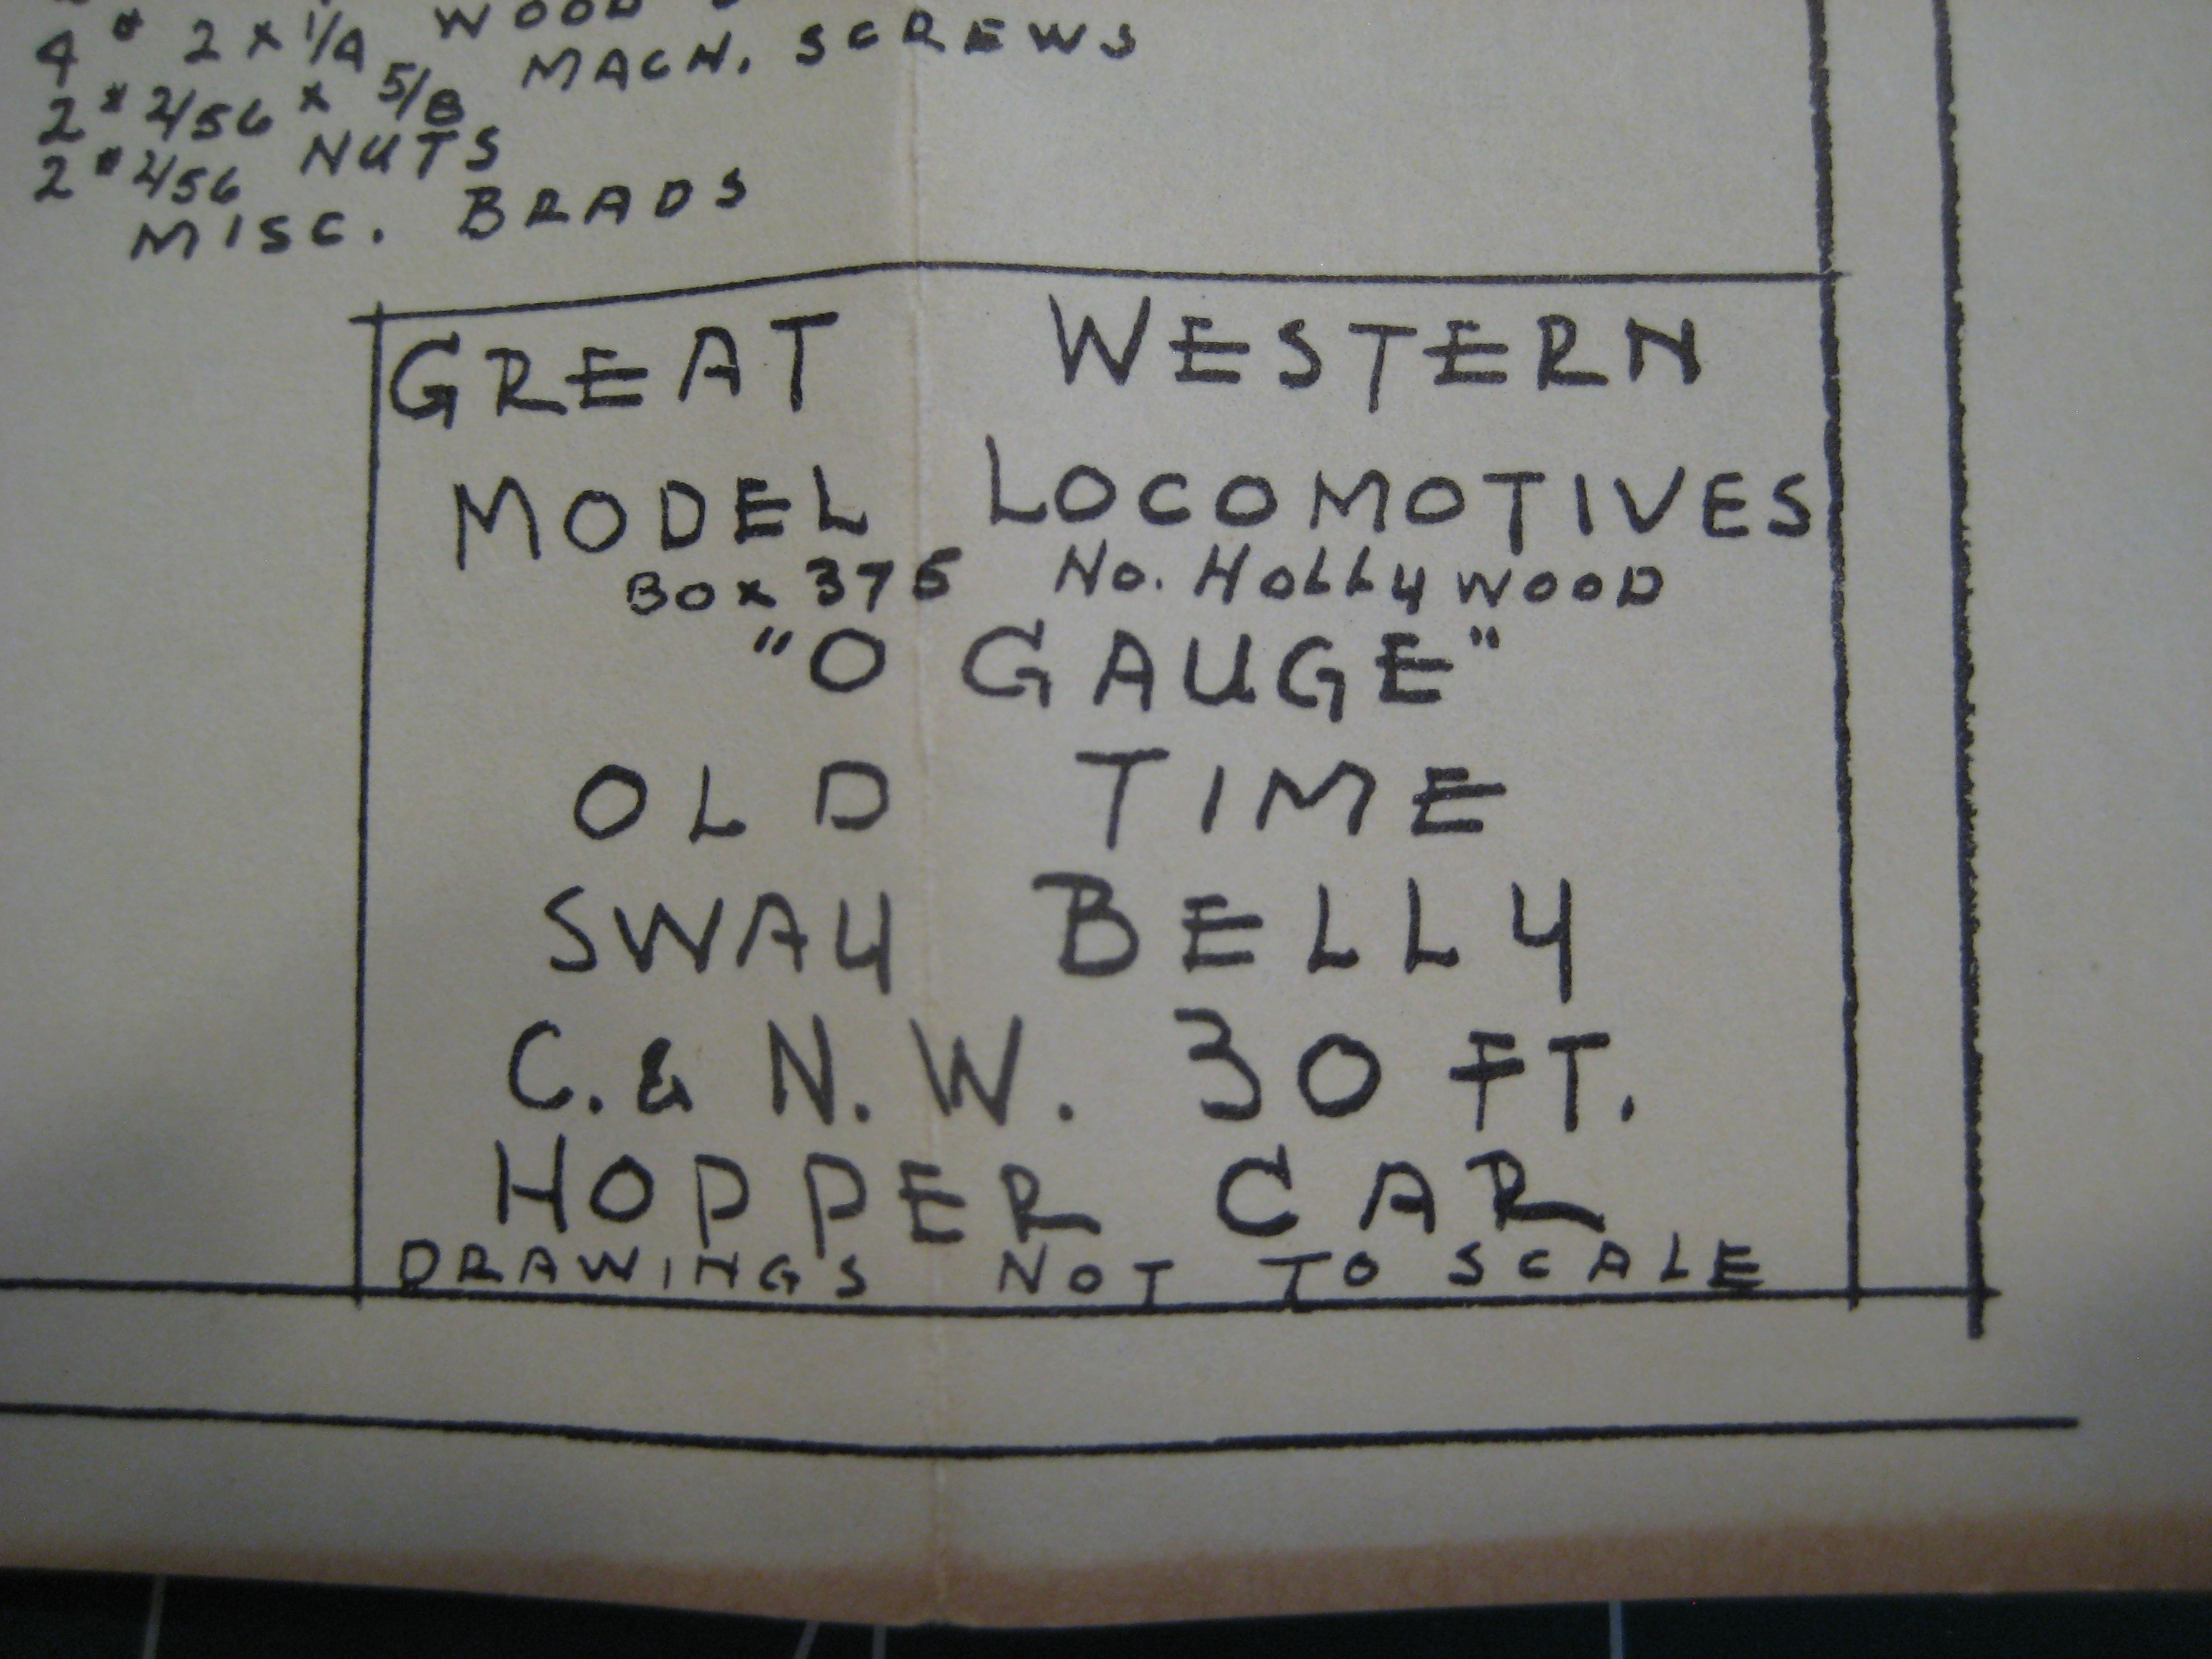 4 # 2 x 1/4 WOOD
2 # 2/56 x 5/8 MACH. SCREWS
2 # 2/56 NUTS
MISC. BRADS
GREAT WESTERN
MODEL LOCOMOTIVES
BOX 375 NO. HOLLYWOOD
"O GAUGE"
OLD TIME
SWAY BELLY
C. & N. W. 30 FT.
HOPPER CAR
DRAWINGS NOT TO SCALE